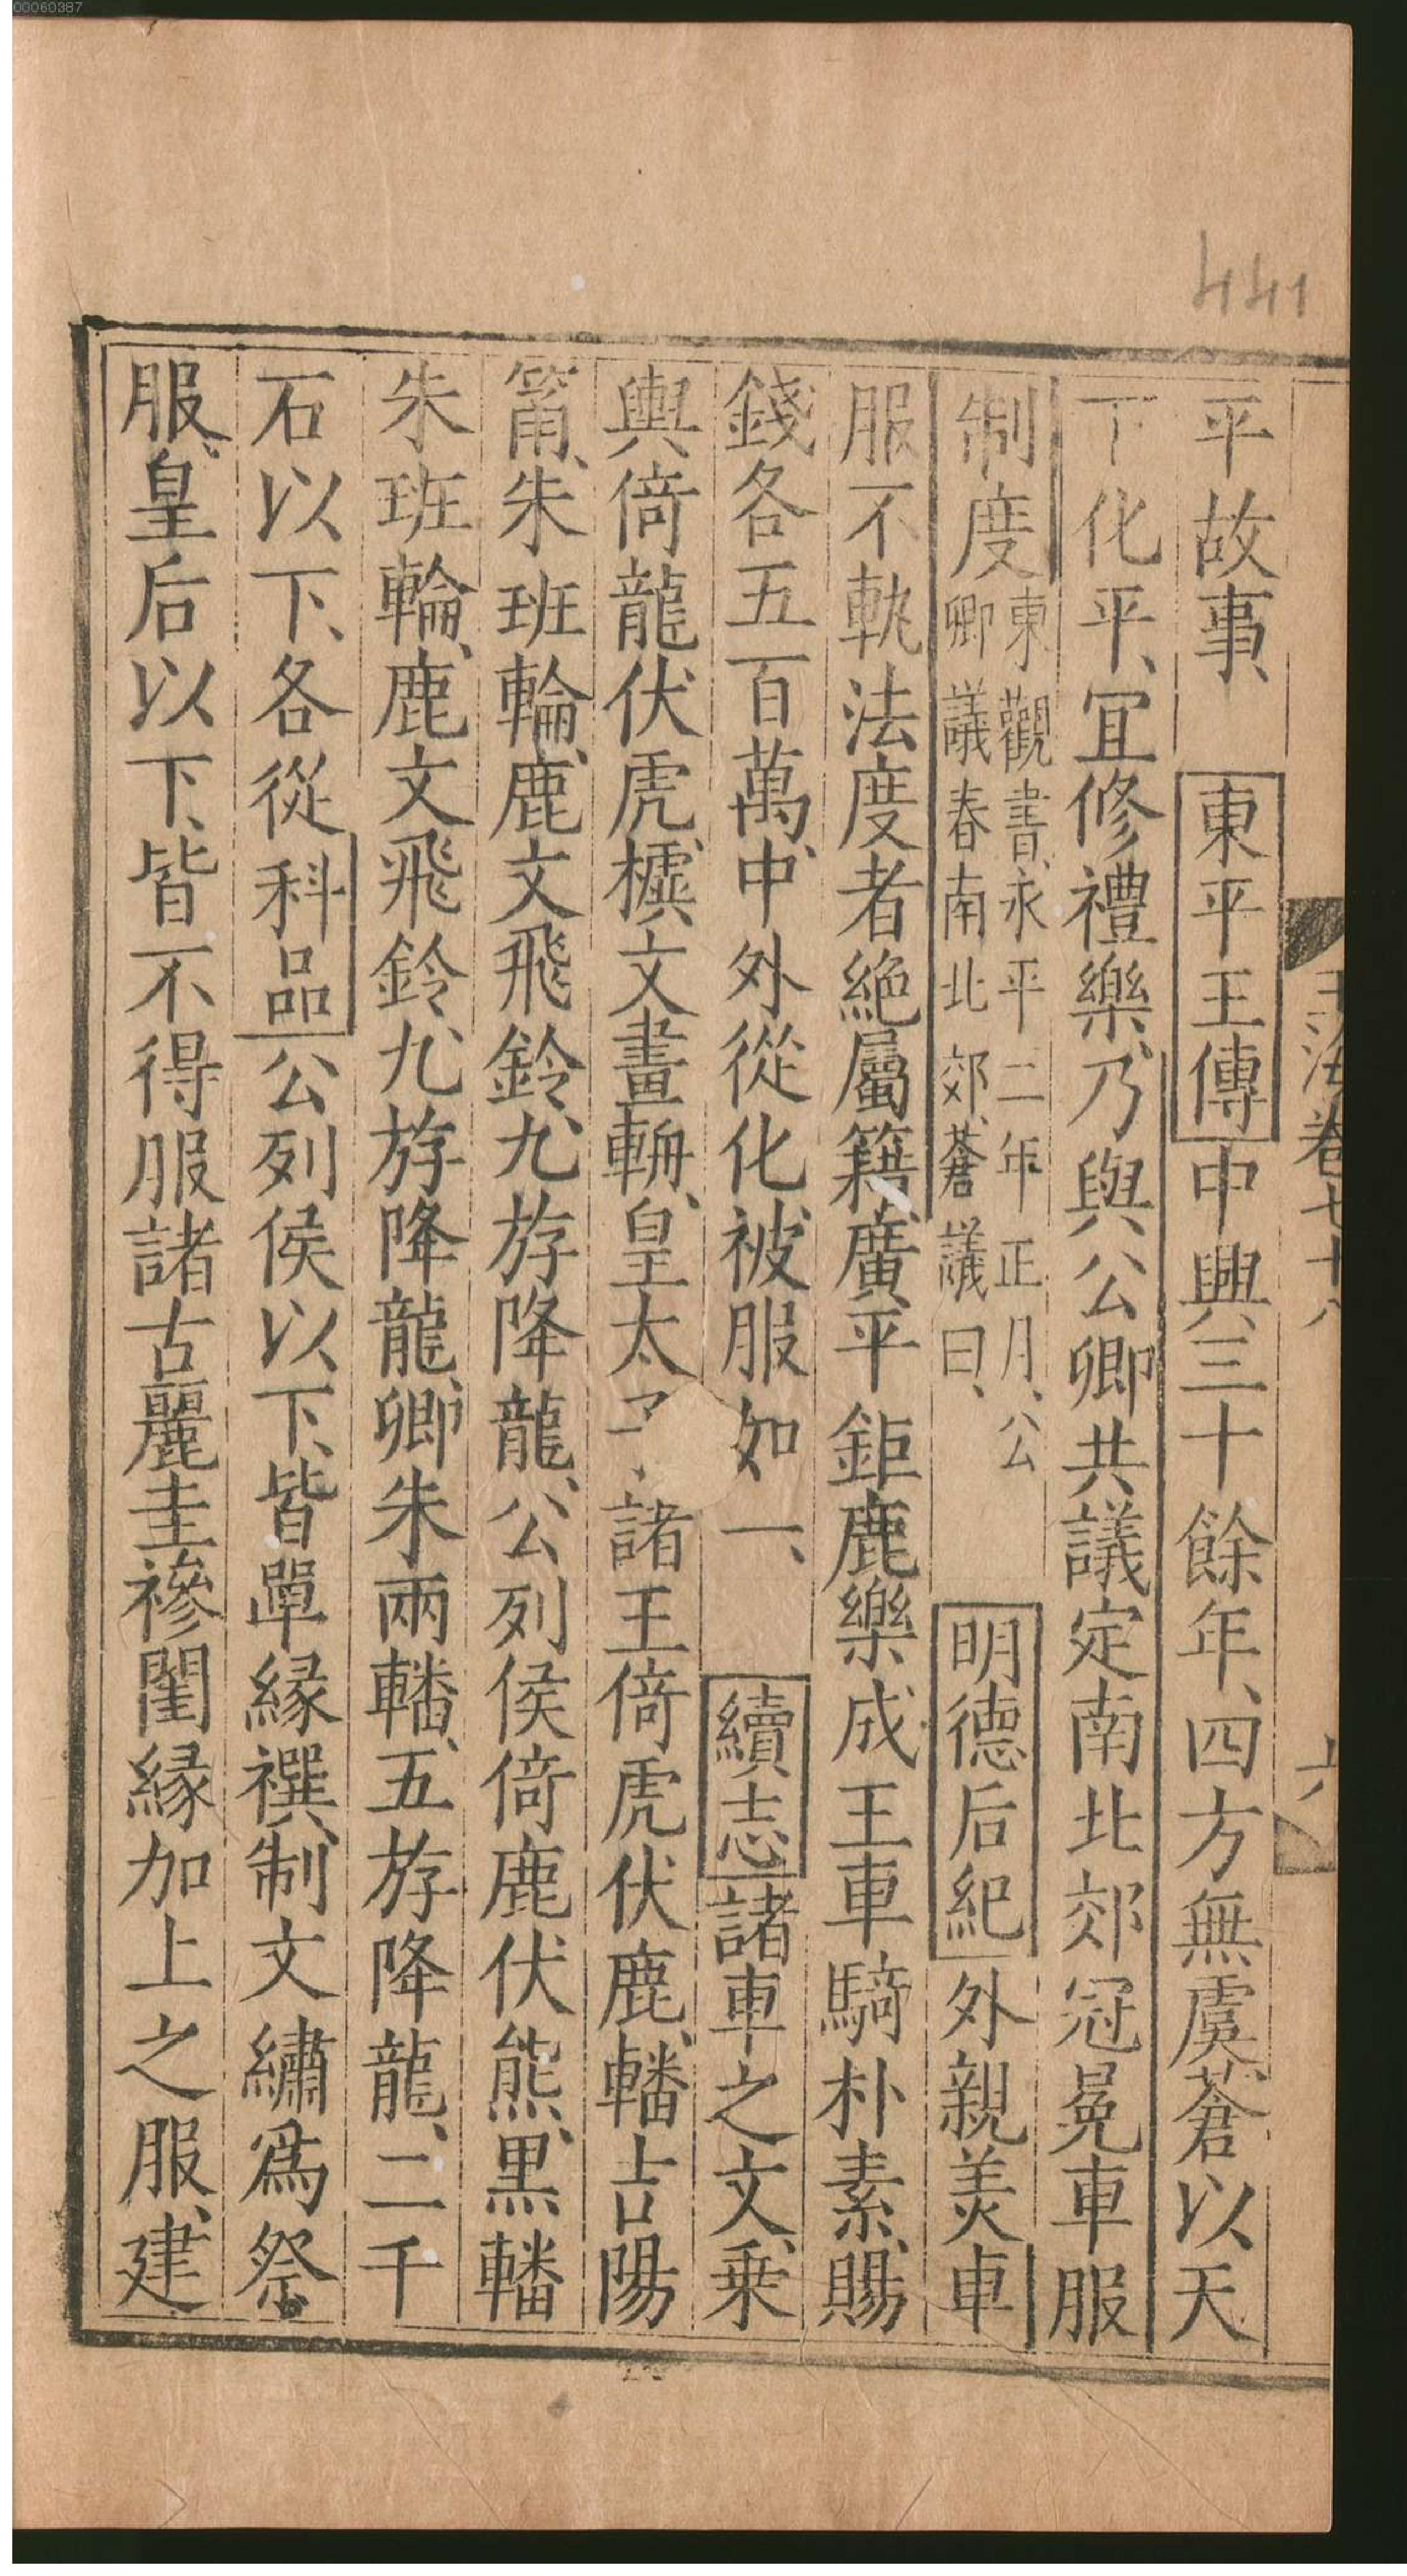 00060387
441
玉海卷七十八
六
平故事、東平王傳中興三十餘年、四方無虞、蒼以天
下化平、宜修禮樂、乃與公卿共議定南北郊冠冕車服
制度東觀書、永平二年正月、公
卿議春南北郊、蒼議曰、
明德后紀外親美車
服不軌法度者絶屬籍、廣平鉅鹿樂成王車騎朴素、賜
錢各五百萬、中外從化、被服如一、續志諸車之文、乗
輿倚龍伏虎、㯫文畫輈、皇太子、諸王倚虎伏鹿、轓吉陽
筩、朱班輪、鹿文飛鈴、九斿降龍、公列侯倚鹿伏熊、黒轓
朱班輪、鹿文飛鈴、九斿降龍、卿朱兩轓、五斿降龍、二千
石以下、各從科品公列侯以下、皆單緣襈、制文繡爲祭
服、皇后以下、皆不得服諸古麗圭襂閨緣加上之服、建